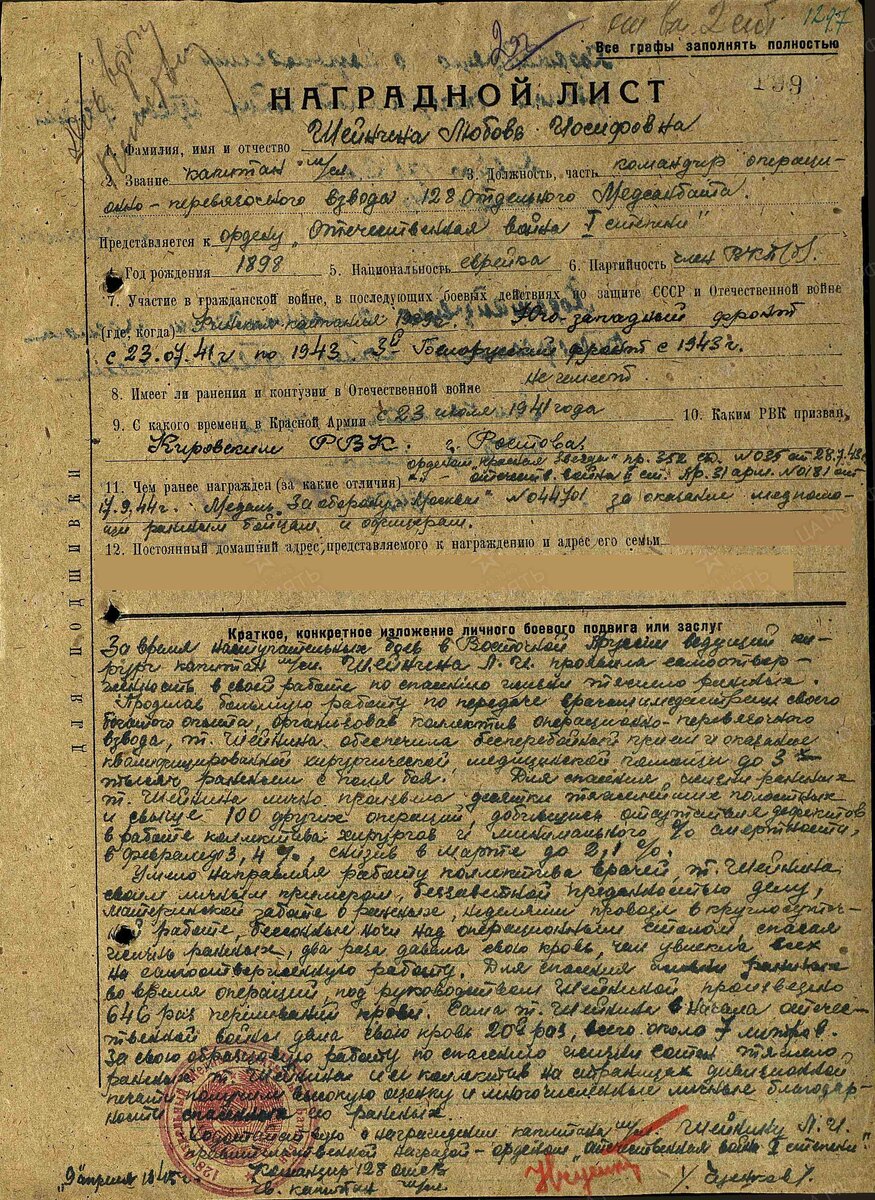 1297
Все графы заполнять полностью
199
НАГРАДНОЙ ЛИСТ
1. Фамилия, имя и отчество Шейнина Любовь Иосифовна
2. Звание капитан м/сл 3. Должность, часть командир операци-
онно-перевязочного взвода 128 Отдельного Медсанбата.
Представляется к ордену „Отечественная война I степени"
4. Год рождения 1898 5. Национальность еврейка 6. Партийность член ВКП(б).
7. Участие в гражданской войне, в последующих боевых действиях по защите СССР и Отечественной войне
(где, когда) Финская кампания Юго западный фронт
с 23.07.41г по 1943 3й Белорусский фронт с 1943г.
8. Имеет ли ранения и контузии в Отечественной войне не имеет.
9. С какого времени в Красной Армии с 23 июля 1941 года 10. Каким РВК призван
Кировским РВК. г. Ростова.
орденом „Красная Звезда" пр. 352 сд. №035 от 28.7.43г
11. Чем ранее награжден (за какие отличия) -"- отечеств. война II ст. Пр. 31 арм. №0181 от
17.9.44г. Медаль „За оборону Москвы" №044701 за оказание медпомо-
щи раненым бойцам и офицерам.
12. Постоянный домашний адрес представляемого к награждению и адрес его семьи
ДЛЯ ПОДШИВКИ
Краткое, конкретное изложение личного боевого подвига или заслуг
За время наступательных боев в Восточной Пруссии ведущий хи-
рург капитан м/сл. Шейнина Л.И. проявила самоотвер-
женность в своей работе по спасению жизни тяжело раненых.
Проделав большую работу по передаче врачам и медсестрам своего
богатого опыта, организовав коллектив операционно-перевязочного
взвода, т. Шейнина обеспечила бесперебойный прием и оказание
квалифицированной хирургической медицинской помощи до 3
тысяч раненым с поля боя. Для спасения жизни раненых
т. Шейнина лично произвела десятки тяжелейших полостных
и свыше 100 других операций, добившись отсутствия дефектов
в работе коллектива хирургов и минимального % смертности,
в феврале до 3,4 %, снизив в марте до 2,1 %.
Умело направляя работу коллектива врачей, т. Шейнина
своим личным примером, беззаветной преданностью делу,
материнской заботе о раненых, неделями проводя в круглосуточ-
ной работе, бессонные ночи над операционным столом, спасая
жизнь раненых, два раза давала свою кровь, чем увлекла всех
на самоотверженную работу. Для спасения жизни раненых
во время операций, под руководством Шейниной произведено
646 раз переливаний крови. Сама т. Шейнина с начала отече-
ственной войны дала свою кровь 20 раз, всего около 7 литров.
За свою образцовую работу по спасению жизни сотен тяжело
раненых т. Шейнина и её коллектив на страницах дивизионной
печати получили высокую оценку и многочисленные личные благодар-
ности спасенных ею раненых.
Ходатайствую о награждении капитана м/сл. Шейнину Л.И.
правительственной наградой - орденом „Отечественная война I степени"
„9" апреля 1945г. Командир 128 омсб
капитан м/сл